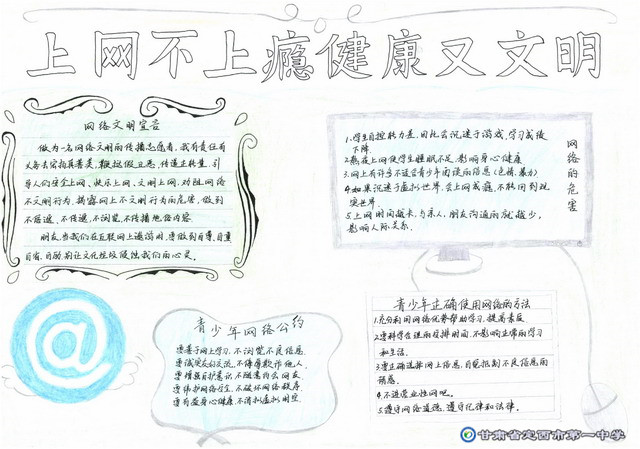 上网不上瘾健康又文明
网络文明宣言
做为一名网络文明的传播志愿者,我有责任有
义务去宏扬真善美,鞭挞假丑恶,传递正能量,引
导人们安全上网、快乐上网、文明上网,劝阻网络
不文明行为,揭露网上不文明行为的危害,做到
不信谣、不传谣、不浏览、不传播低俗内容.
朋友,当我们在互联网上遨游时,要做到自尊,自重
自省,自励,别让文化垃圾侵蚀我们的心灵。
网络的危害
1.学生自控能力差,因此会沉迷于游戏,学习成绩
下降.
2.熬夜上网使学生睡眠不足,影响身心健康
3.网上有许多不适合青少年阅读的信息(色情、暴力)
4.如果沉迷于虚拟世界,会上网成瘾,不能回到现
实世界.
5.上网时间越长,与亲人、朋友沟通的就越少,
影响人际关系.
青少年网络公约
要善于网上学习,不浏览不良信息.
要诚实友好交流,不侮辱欺诈他人.
要增强自护意识,不随意约会网友.
要维护网络安全,不破坏网络秩序.
要有益身心健康,不沉溺虚拟时空.
青少年正确使用网络的方法
1.充分利用网络优势帮助学习,提高素质
2.要科学合理的安排时间,不影响正常的学习
和生活.
3.要正确选择网上信息,自觉抵制不良信息的
诱惑.
4.不进营业性网吧。
5.遵守网络道德,遵守纪律和法律。
甘肃省定西市第一中学